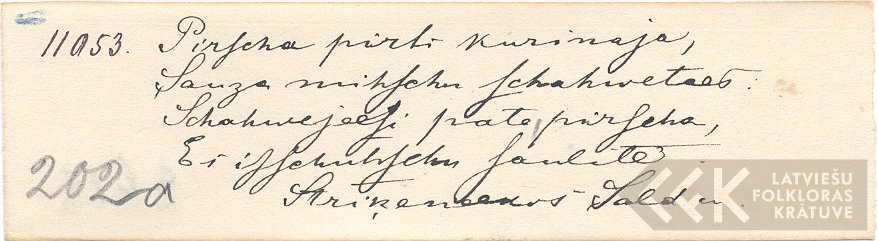 11053. Pirscha pirti kurinaja,
Sauza mihschu schahwetees:
Schahwejeesi pate pirscha,
Es isschuhschu saulite
Striķeneekos Saldū.
202a
LATVIEŠU
FOLKLORAS
KRĀTUVE